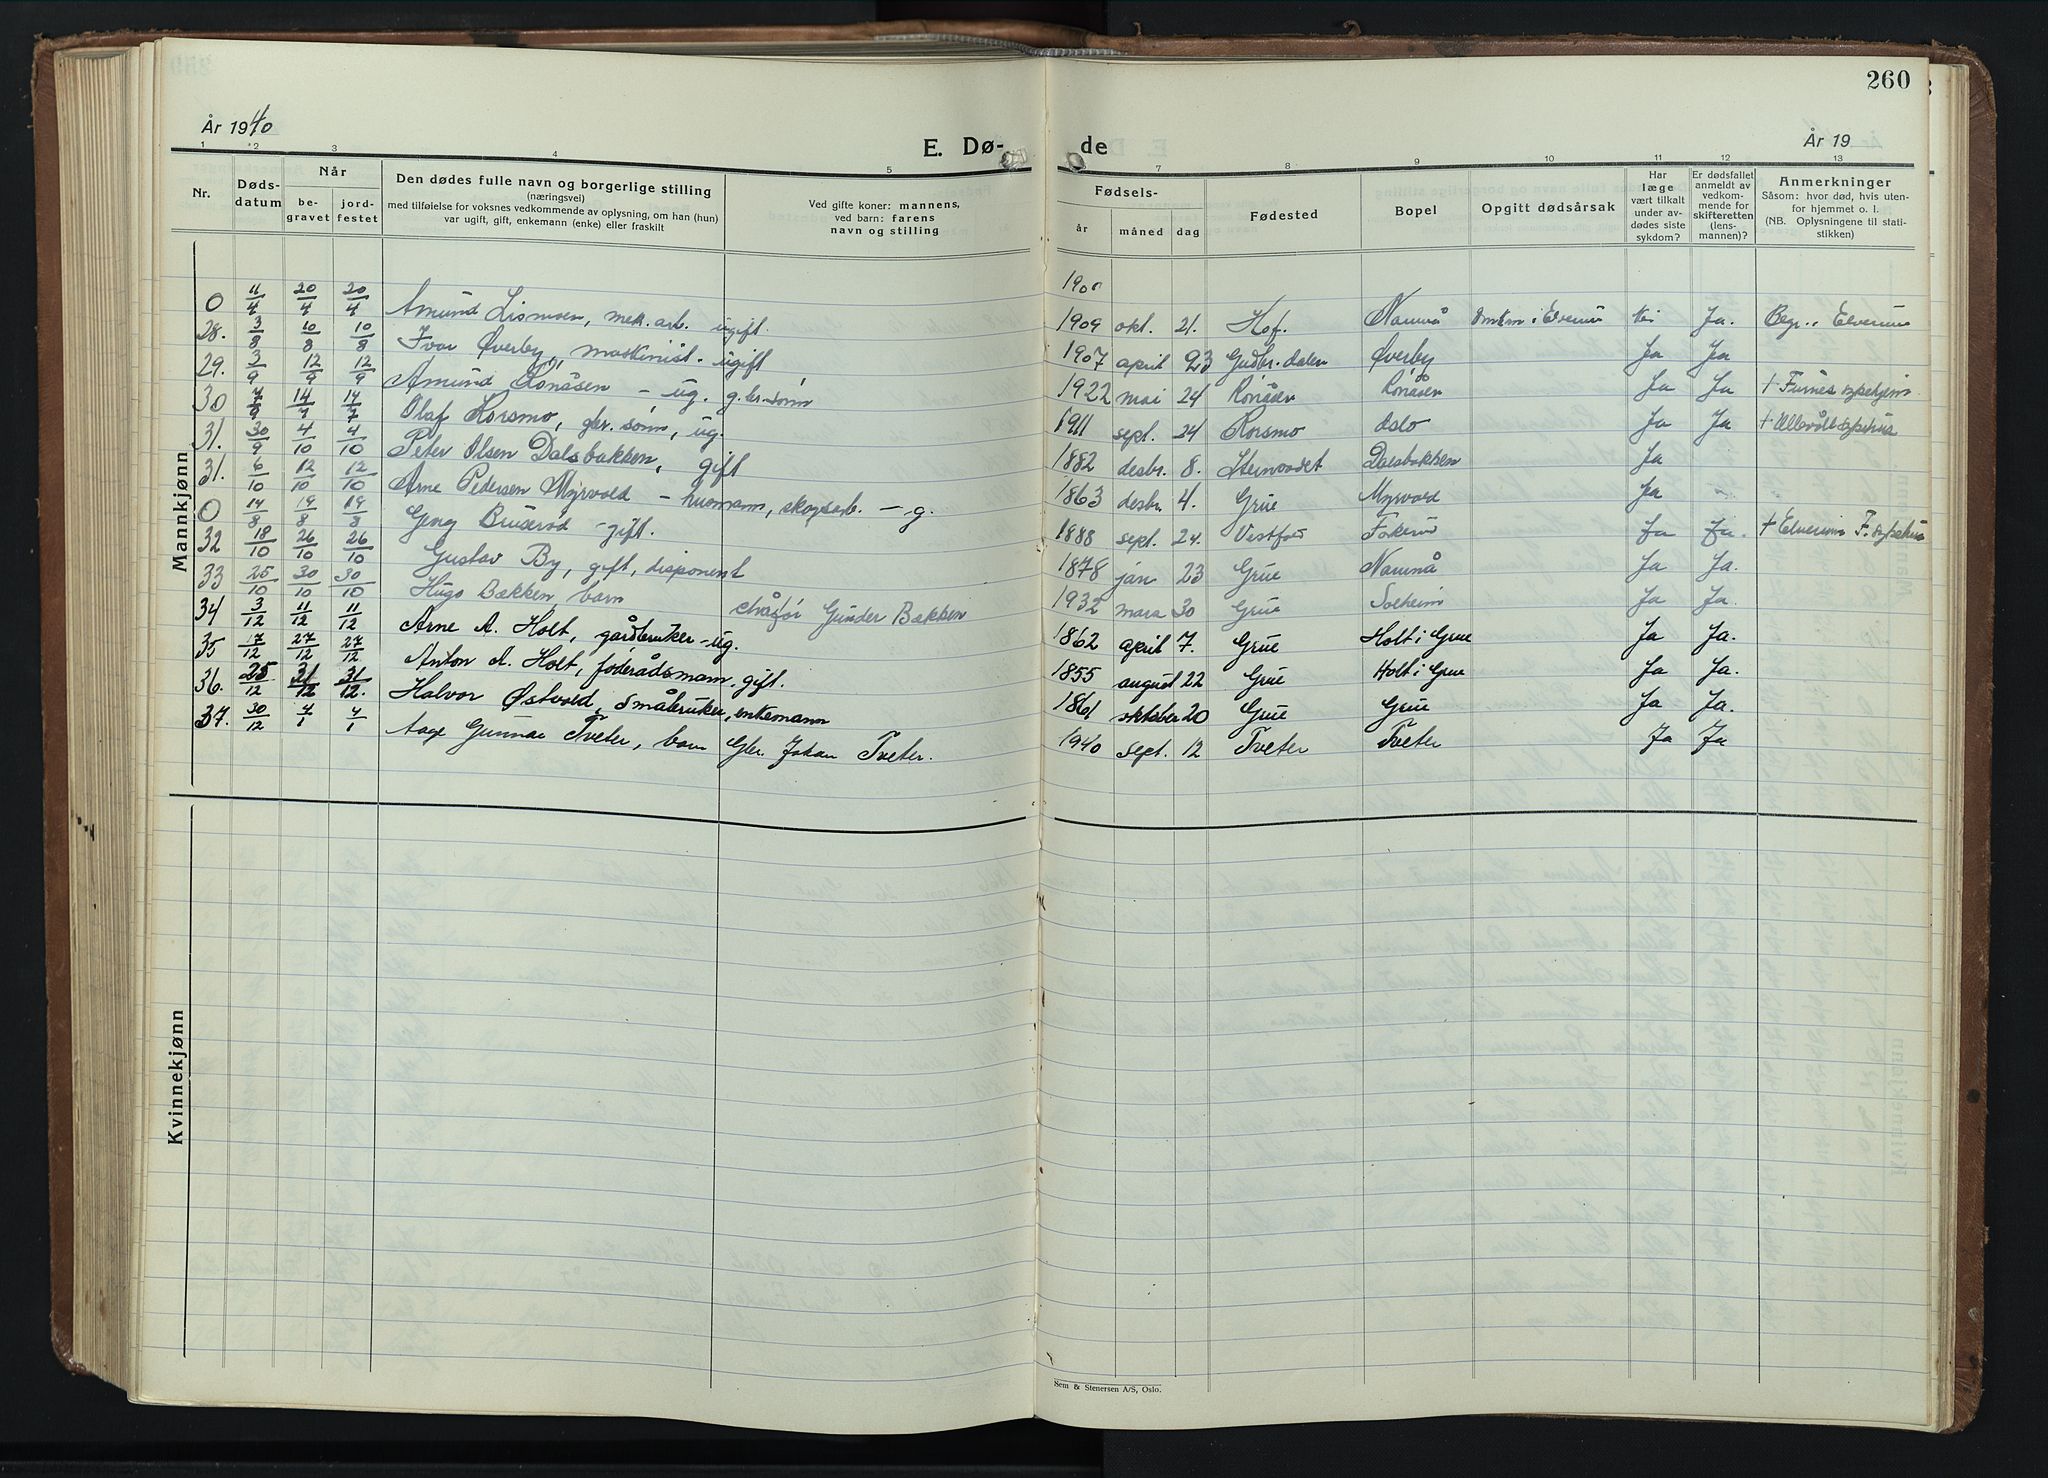 260
År 1940
E. Dø-
de
År 19
1 2 3 4 5 7 8 9 10 11 12 13
Nr.
Døds-
datum
Når
be-
gravet
jord-
festet
Den dødes fulle navn og borgerlige stilling
(næringsvei)
med tilføielse for voksnes vedkommende av oplysning, om han (hun)
var ugift, gift, enkemann (enke) eller fraskilt
Ved gifte koner: mannens,
ved barn: farens
navn og stilling
Fødsels-
år måned dag
Fødested
Bopel
Opgitt dødsårsak
Har
læge
vært tilkalt
under av-
dødes siste
sykdom?
Er dødsfallet
anmeldt av
vedkom-
mende for
skifteretten
(lens-
mannen)?
Anmerkninger
Såsom: hvor død, hvis uten-
for hjemmet o. l.
(NB. Oplysningene til stati-
stikken)
Mannkjønn
0 11/4 20/4 20/4 Amund Lismoen, mek. arb. ugift. 1909 okt. 21. Hof. Namnå Omkom i Elverum Nei Ja. Begr. i Elverum
28. 3/8 10/8 10/8 Ivar Øverby, maskinist. ugift 1907 april 23 Gudbr. dalen Øverby Ja Ja
29. 3/9 12/9 12/9 Amund Rønåsen - ug. g.br. sønn 1922 mai 24 Rønåsen Rønåsen Ja Ja + Furnes sykehjem
30 14 14/7 Olaf Korsmo, gbr. sønn, ug. 1911 sept. 24 Korsmo Oslo Ja Ja + Ullevål sykehus
31. 30/9 4/10 4/10 Peter Olsen Dalsbakken, gift 1882 desbr. 8. Dalsbakken Ja
31. 6/10 12/10 12/10 Arne Pedersen Myrvold - husmann, skogsarb. - g. 1863 desbr. 4. Grue Myrvold Ja
0 14/8 19/8 19/8 Georg Bruserød - gift. 1888 sept. 24. Vestfold Ja Ja. + Elverum F. sykehus
32 18/10 26/10 26/10 Gustav By, gift, disponent 1878 jan 23 Grue Namnå Ja Ja.
33 25/10 30/10 30/10 Hugo Bakken, barn Gunder Bakken 1932 mars 30 Grue Solheim Ja Ja.
34 3/12 11/12 11/12 Arne A. Holt, gårdbruker - ug. 1862 april 7. Grue Holt i Grue Ja Ja.
35 17/12 27/12 27/12 Anton A. Holt, føderådsmann, gift. 1855 august 22 Grue Holt i Grue Ja Ja.
36. 25/12 31/12 31/12. Halvor Østvold, småbruker, enkemann 1861 oktober 20 Grue Grue Ja Ja.
37. 30/12 4/1 4/1 Aage Gunnar Tveter, barn Gbr. Johan Tveter. 1940 sept. 12 Tveter Tveter Ja Ja
Kvinnekjønn
Sem & Stenersen A/S, Oslo.